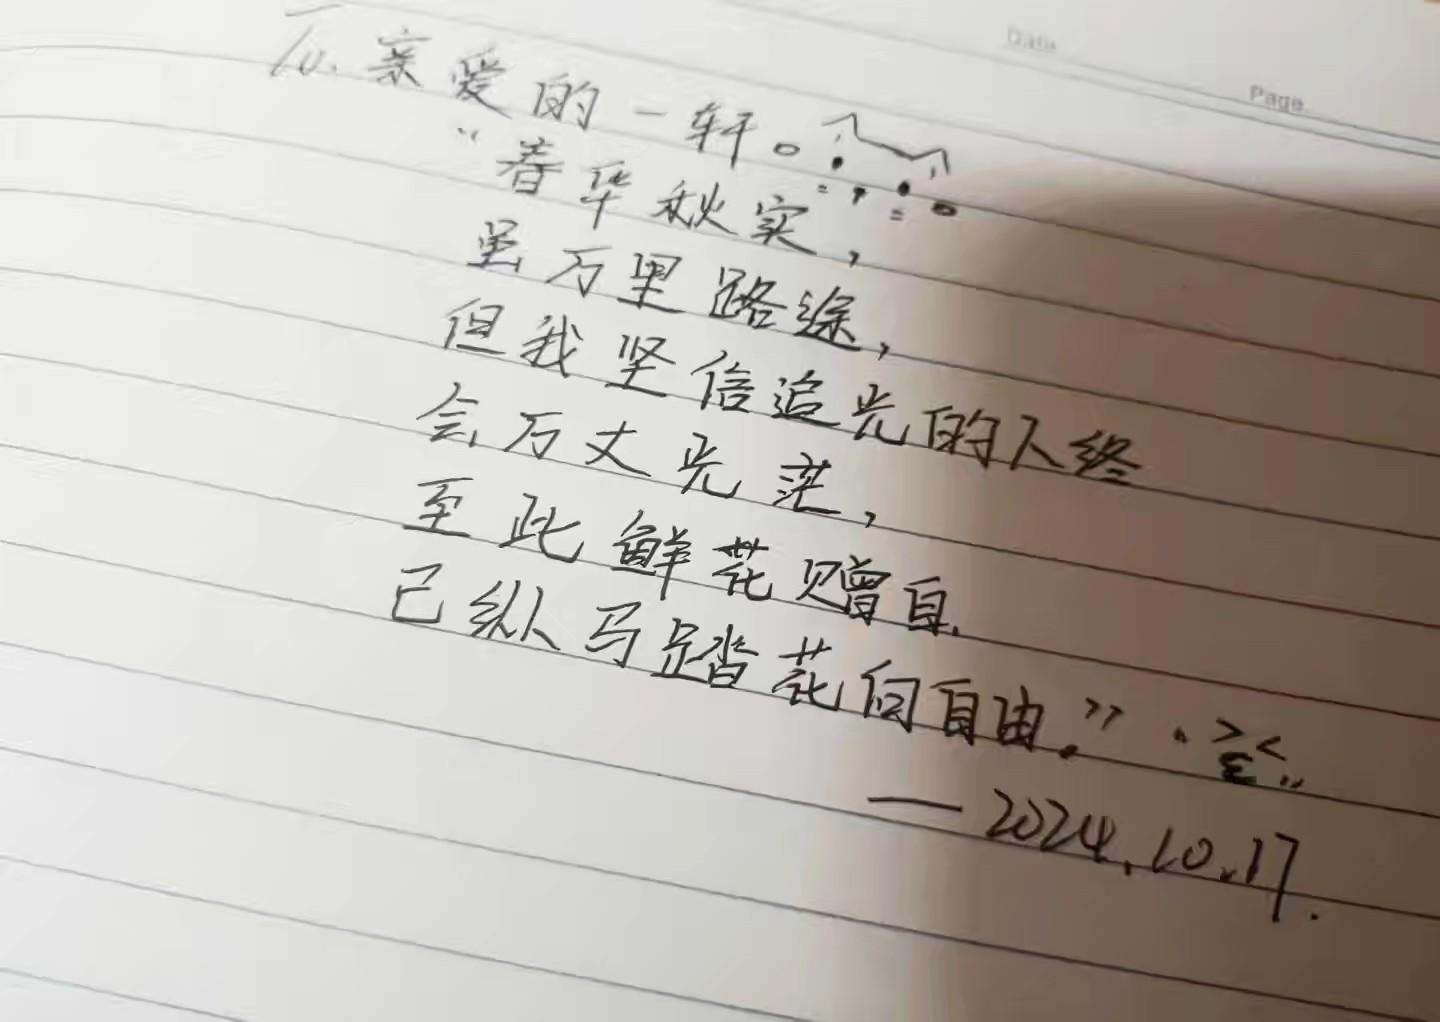 Date
Page
To. 亲爱的一轩。
“春华秋实，
虽万里路途，
但我坚信追光的人终
会万丈光茫，
至此鲜花赠自
己纵马踏花向自由。”
—2024.10.17.